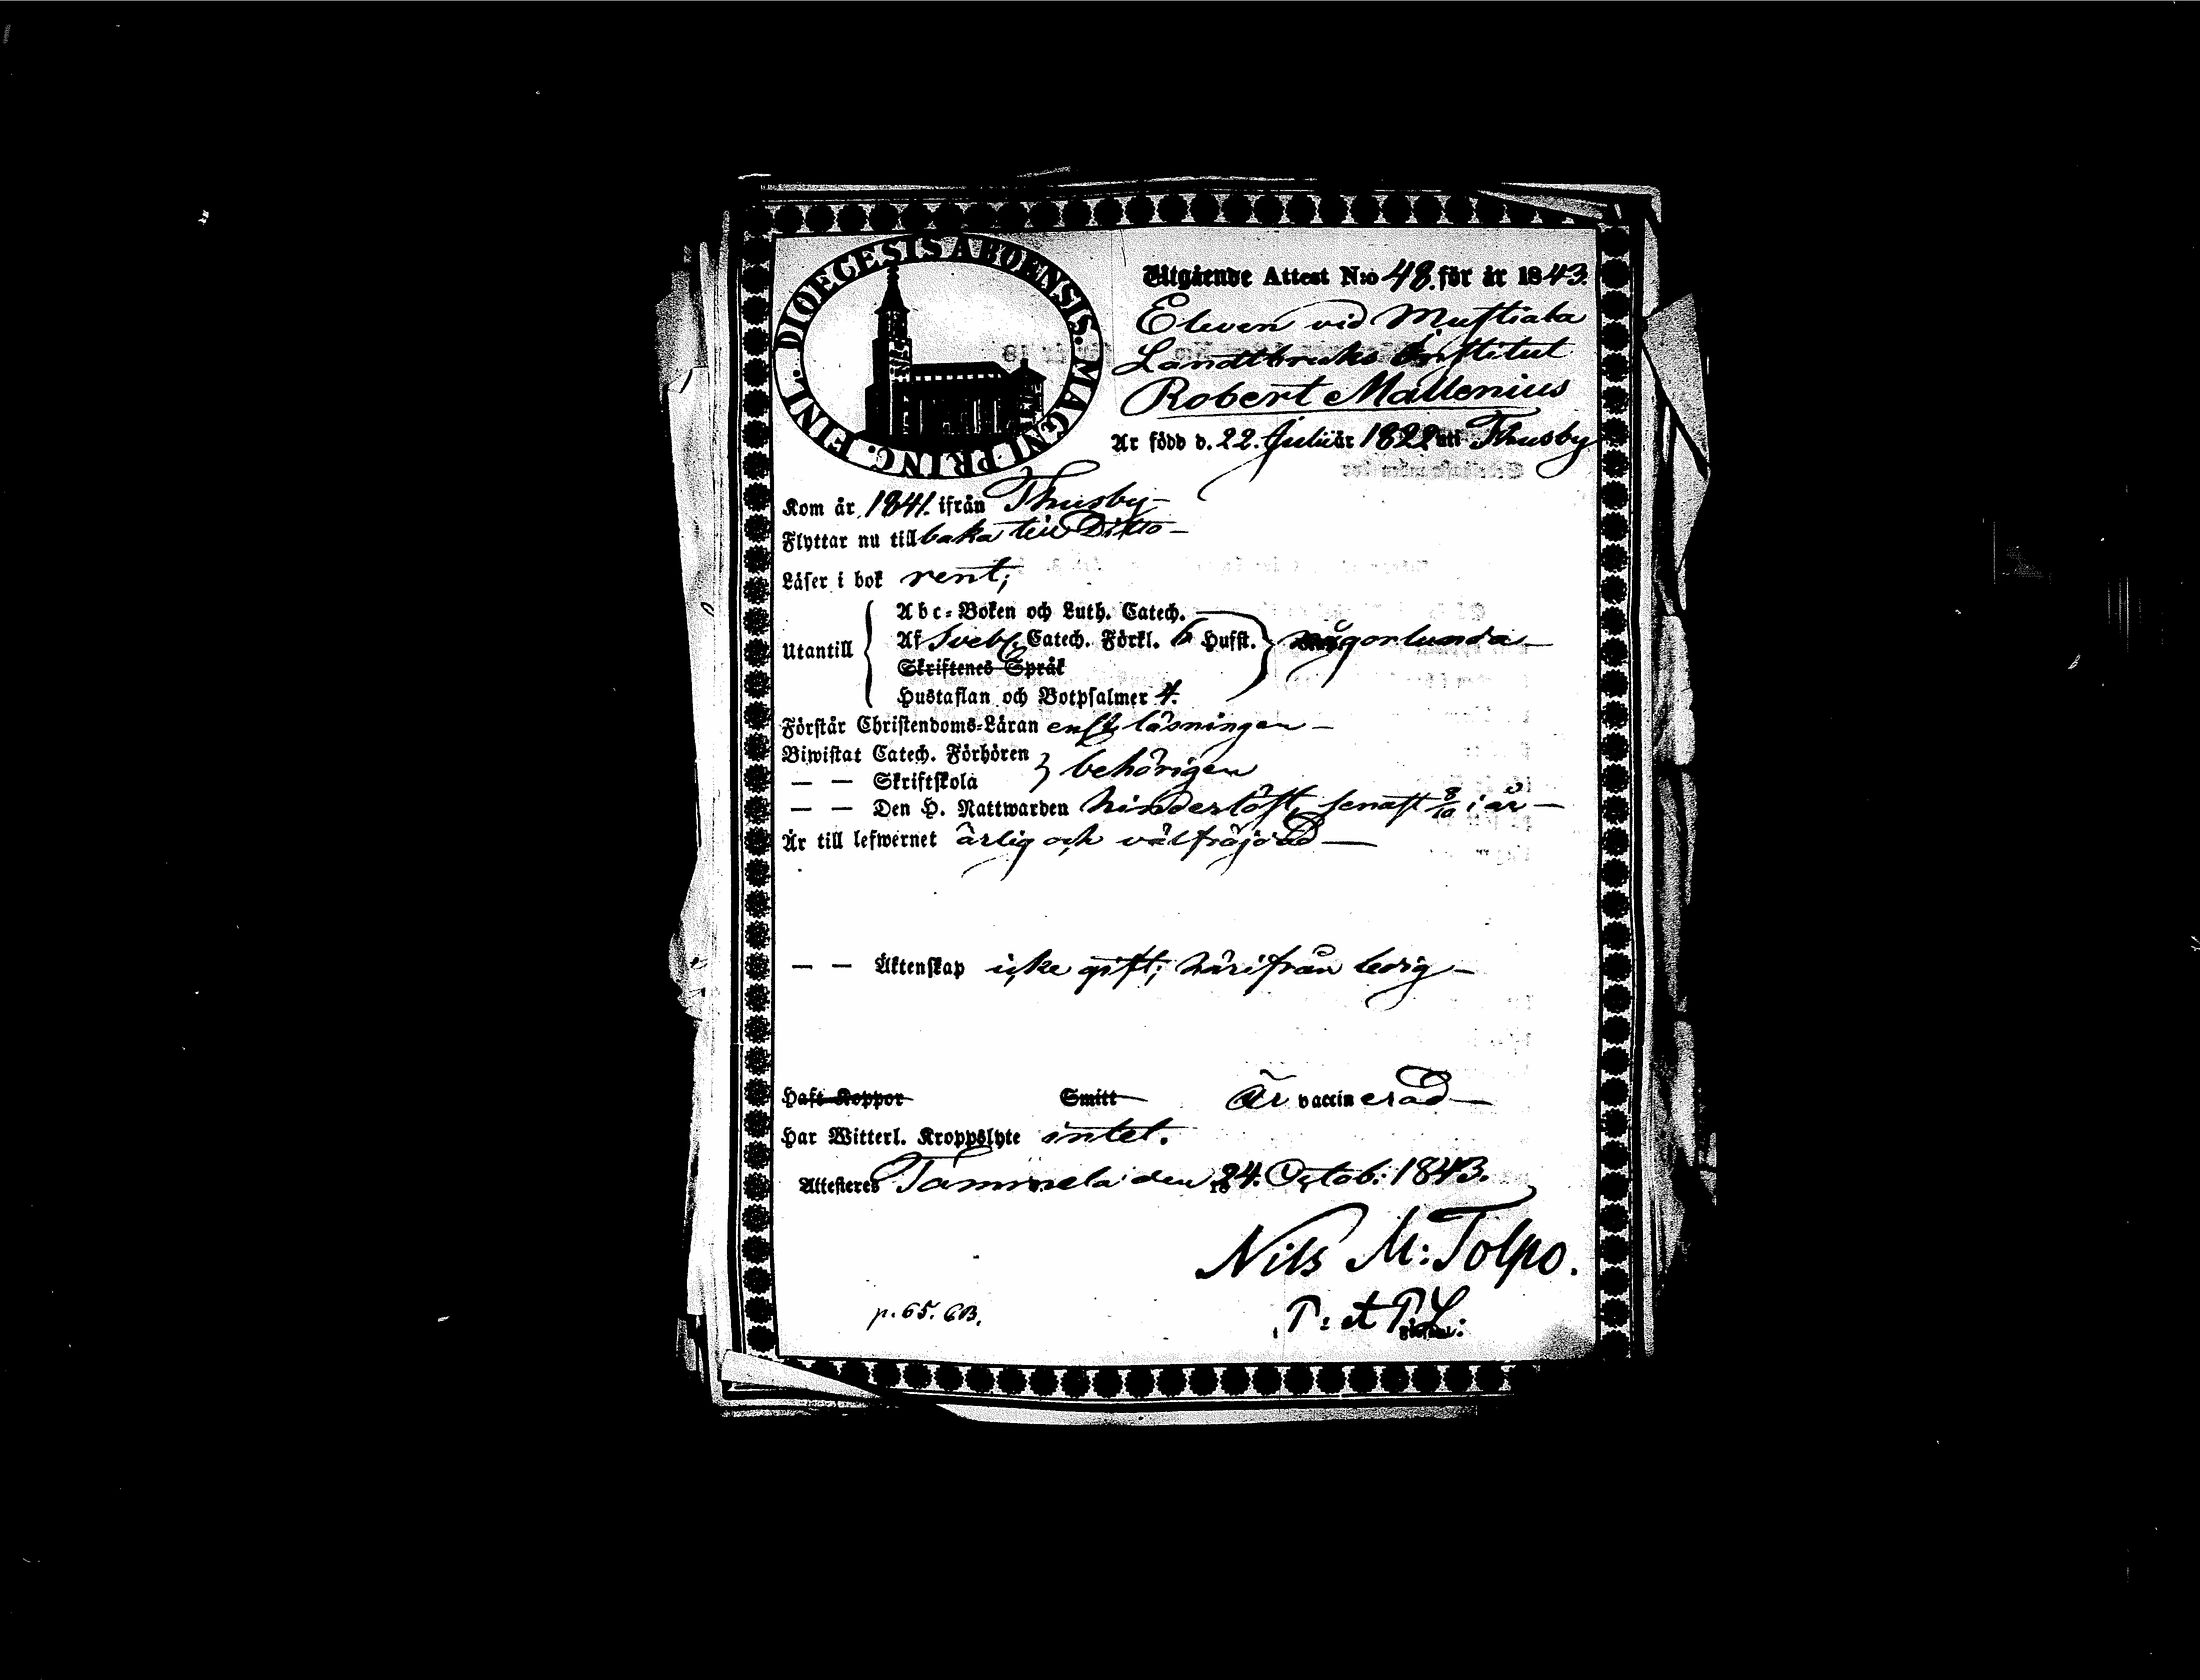 DIOECESIS ABOENSIS. MAGNI PRINC. FINL.
Utgående Attest N:o 48. för år 1843.
Eleven vid Mustiala
Landtbruks Institut
Robert Mallenius
Är född d. 22. Julii år 1822 uti Thusby
Kom år 1841. ifrån Thusby –
Flyttar nu tillbaka till Ditto –
Läser i bok rent;
Utantill
Abc-Boken och Luth. Catech.
Af Sveb. Catech. Förkl. 6 Hufst. någorlunda –
Skriftenes Språk
Hustaflan och Botpsalmer 4.
Förstår Christendoms-Läran enl. läsningen –
Biwistat Catech. Förhören
— — Skriftskola behörigen
— — Den H. Nattwarden hinderlöst, senast 8/10 i år –
Är till lefwernet ärlig och välfräjdad –
— — Äktenskap icke gift; härifrån ledig –
Haft Koppor Smitt Är vaccinerad –
Har Witterl. Kroppslyte intet.
Attesteres Tammela den 24. Octob: 1843.
Nils M: Tolpo.
P: et P.L:
p. 65. 6B.